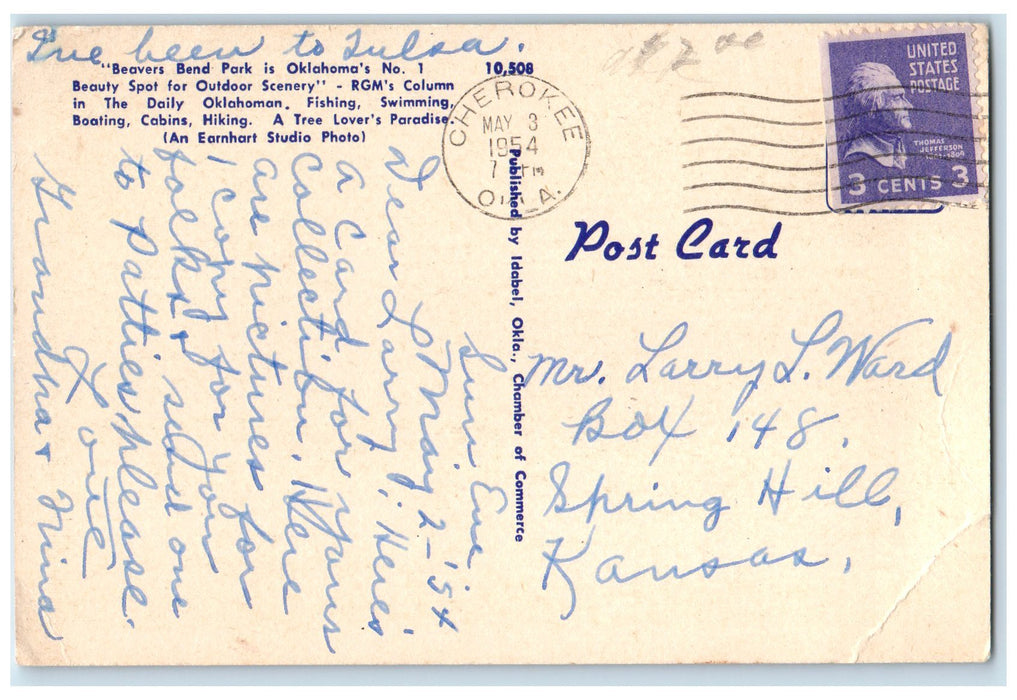 I've been to Tulsa.
"Beavers Bend Park is Oklahoma's No. 1 10,508
Beauty Spot for Outdoor Scenery" - RGM's Column
in The Daily Oklahoman. Fishing, Swimming,
Boating, Cabins, Hiking. A Tree Lover's Paradise.
(An Earnhart Studio Photo)
Sun Eve
May 2-'54
Dear Larry: Here's
a card for your
collection. Here
are pictures for
1 copy for you
folks & send one
to Pattie please.
Love
Grandpa & Nina
Published by Idabel, Okla., Chamber of Commerce
$2 00
CHEROKEE
MAY 3
1954
7 PM
OKLA.
UNITED
STATES
POSTAGE
THOMAS
JEFFERSON
1801-1809
3 CENTS 3
Post Card
Mr. Larry L. Ward
Box 148.
Spring Hill,
Kansas,